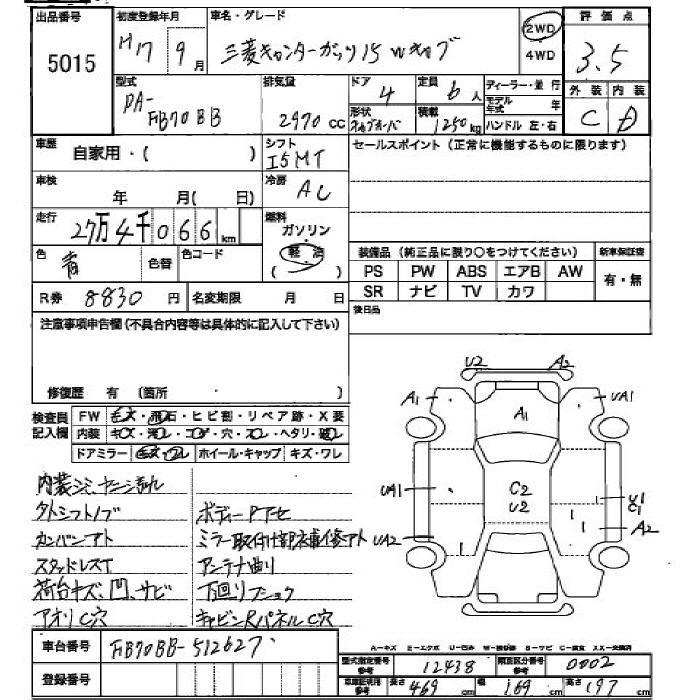 出品番号
5015
初度登録年月
H17 9月
車名・グレード
三菱キャンターガッツ15 Wキャブ
2WD
4WD
評価点
3.5
外装 内装
C D
型式
PA-
FB70BB
排気量
2970 CC
ドア
4
定員
6人
形状
積載
1250kg
ディーラー・並行
モデル年式 年
ハンドル 左・右
車歴
自家用・( )
シフト
I5MT
セールスポイント(正常に機能するものに限ります)
車検
年 月( 日)
冷房
AC
走行
27万4千066km
燃料
ガソリン
軽油
色
青
色替
色コード
装備品(純正品に限り○をつけてください)
新車保証書
PS PW ABS エアB AW
SR ナビ TV カワ
有・無
R券 8830円
名変期限 月 日
後日品
注意事項申告欄(不具合内容等は具体的に記入して下さい)
修復歴 有 (箇所 )
検査員
記入欄
FW キズ・飛石・ヒビ割・リペア跡・X要
内装 キズ・汚レ・コゲ・穴・スレ・ヘタリ・破レ
ドアミラー キズ・ワレ ホイール・キャップ キズ・ワレ
内装シミ、ヤニ汚れ
タトシフトノブ
カンバンアト
スタッドレスT
荷台キズ、凹、サビ
アオリC穴
ボディーPヤセ
ミラー取付け部補修アト
アンテナ曲り
下回りフショク
キャビンRパネルC穴
U2 A2
A1 A1 UA1
UA1 C2 U2 U1 C1
UA2 A2
A-キズ E-エクボ U-凹み W-補修跡 S-サビ C-腐食 XX-交換済
車台番号
FB70BB-512627
登録番号
型式指定番号 参考 12438
類別区分番号 参考 0002
車庫証明用 参考 長さ 469cm 幅 169cm 高さ 197cm